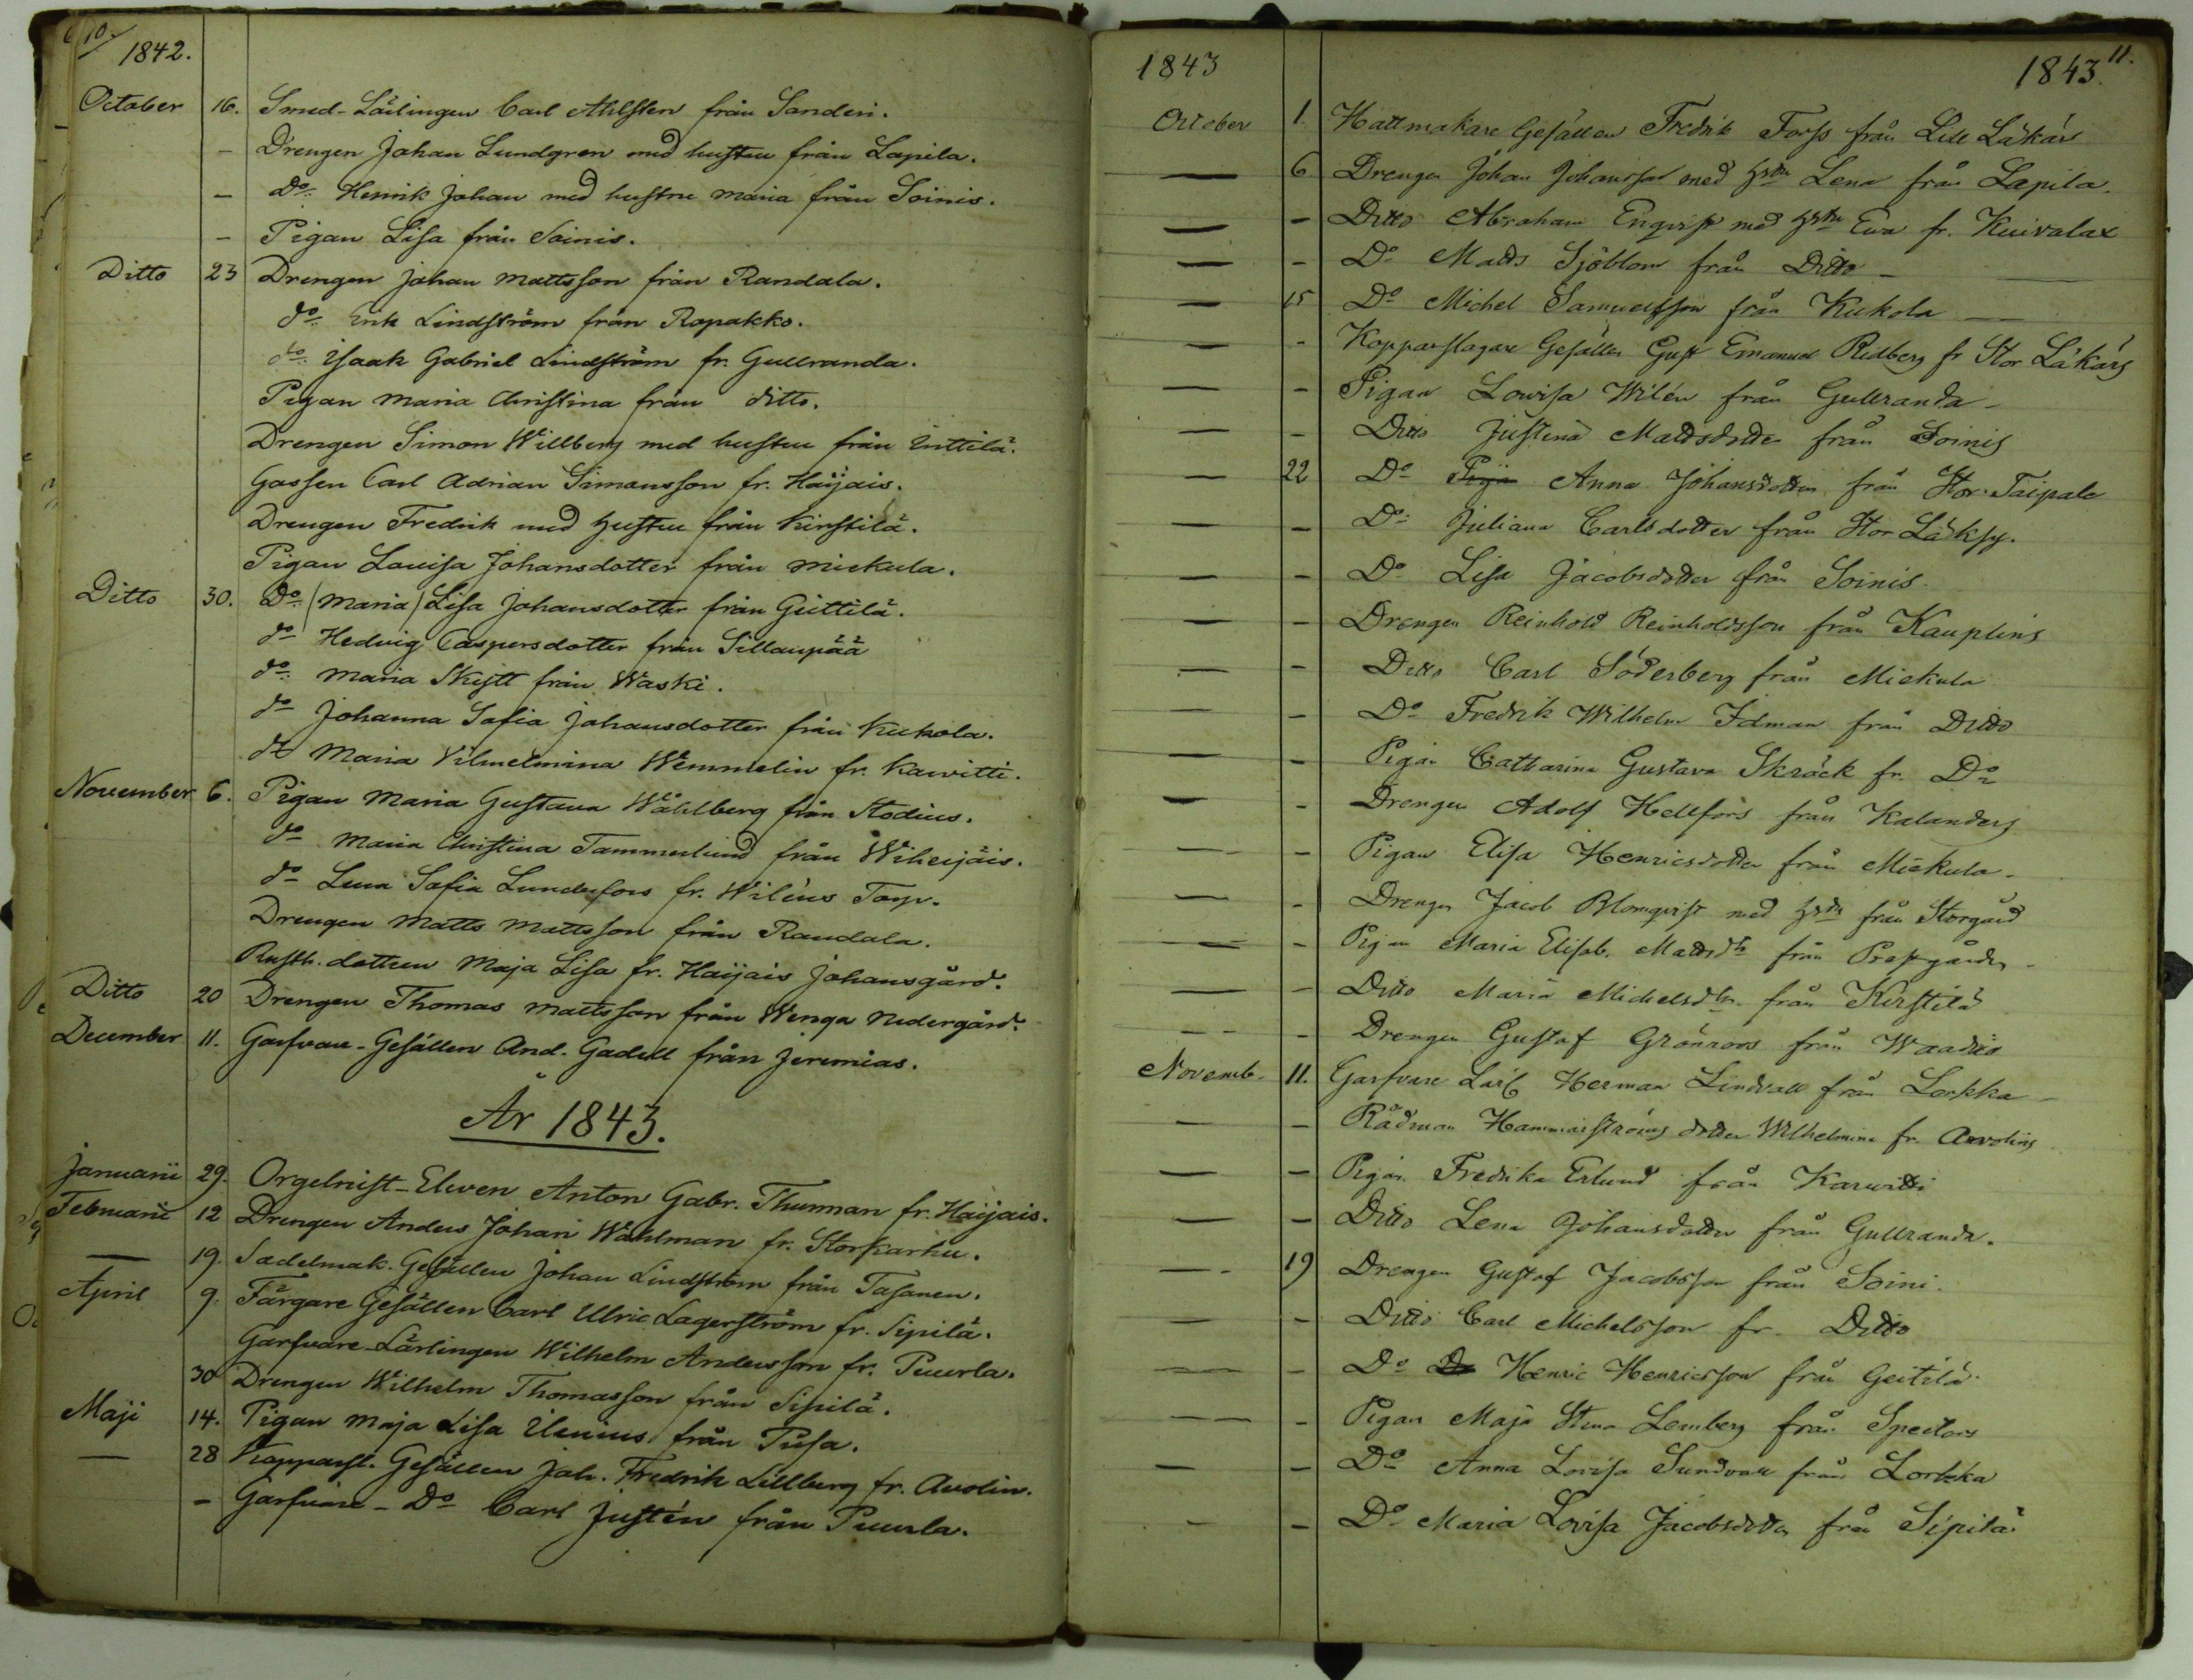 10.
1842.
October 16. Smed-Lärlingen Carl Ahlsten från Sanderi.
– Drengen Johan Lundgren med hustru från Lapila.
– Do: Henrik Johan med hustru Maria från Soinis.
– Pigan Lisa från Soinis.
Ditto 23 Drengen Johan Mattsson från Randala.
do: Erik Lindström från Ropakko.
do: Isaak Gabriel Lindström fr. Gullranda.
Pigan Maria Christina från ditto.
Drengen Simon Willberg med hustru från Inttilä.
Gossen Carl Adrian Simonsson fr. Haijais.
Drengen Fredrik med hustru från Kirstilä.
Pigan Lovisa Johansdotter från Miekula.
Ditto 30. Do: /Maria/ Lisa Johansdotter från Gittilä.
do Hedvig Caspersdotter från Sillanpää
do: Maria Skytt från Waski.
do Johanna Sofia Johansdotter från Kukola.
do Maria Vilhelmina Wemmelin fr. Karvitti.
November 6. Pigan Maria Gustava Wåhlberg från Stodius.
do Maria Christina Tammerlund från Wiheijäis.
do Lena Sofia Lunderfors fr. Wiléns Torp.
Drengen Matts Mattsson från Randala.
Rusth. dottren Maja Lisa fr. Haijais Johansgård.
Ditto 20 Drengen Thomas Mattsson från Wenga Nedergård.
December 11. Garfvare-Gesällen And. Gadell från Jeremias.
År 1843.
Januarii 29. Orgelnist-Eleven Anton Gabr. Thurman fr. Haijais.
Februarii 12 Drengen Anders Johan Wahlman fr. Storkarhu.
— 19. Sadelmak. Gesällen Johan Lindström från Tasanen.
April 9. Färgare Gesällen Carl Ulric Lagerström fr. Sipilä.
Garfvare-Lärlingen Wilhelm Andersson fr. Puurla.
30 Drengen Wilhelm Thomasson från Sipilä.
Maji 14. Pigan Maja Lisa Ilenius från Pusa.
— 28 Kopparsl. Gesällen Joh. Fredrik Lillberg fr. Avolin.
– Garfvare-Do Carl Justén från Puurla.
1843
1843. 11.
October 1. Hattmakare Gesällen Fredrik Forss från Lill Läkärs
— 6 Drengen Johan Johansson med hstru Lena från Lapila.
— – Ditto Abraham Enqvist med hstru Eva fr. Kuivalax
— – Do Matts Sjöblom från Ditto –
— 15 Do Michel Samuelsson från Kukola —
— – Kopparslagare Gesällen Gust Emanuel Redberg fr Stor Läkärs
— – Pigan Lovisa Wilén från Gullranda –
— – Ditto Justina Mattsdotter från Soinis
— 22 Do Piga Anna Johansdotter från Stor-Taipale
— – Do Juliana Carlsdotter från Stor Läksy.
— – Do Lisa Jacobsdotter från Soinis.
— – Drengen Reinhold Reinholdsson från Kauplins
— – Ditto Carl Söderberg från Miekula
— – Do Fredrik Wilhelm Idman från Ditto
— – Pigan Catharina Gustava Skräck fr. Do
— – Drengen Adolf Hellfors från Kalanders
— – Pigan Elisa Henricsdotter från Miekula –
— – Drengen Jacob Blomqvist med hstru från Storgård
— – Pigan Maria Elisab. Mattsdtr från Prestgården –
— – Ditto Maria Michelsdtr från Kirstilä
— – Drengen Gustaf Grönroos från Waadio
Novemb. 11. Garfvare Lärl Herman Lindvall från Lorkka –
— – Rådman Hammarströms dotter Wilhelmina fr. Avolins
— – Pigan Fredrika Erlund från Karvitti
— – Ditto Lena Johansdotter från Gullranda.
— 19 Drengen Gustaf Jacobsson från Soini.
— – Ditto Carl Michelsson fr. Ditto
— – Do Do Henric Henricsson från Geitilä.
— – Pigan Maja Stina Lemberg från Spectars
— – Do Anna Lovisa Sundvall från Lorkka
– – Do Maria Lovisa Jacobsdotter från Sipilä